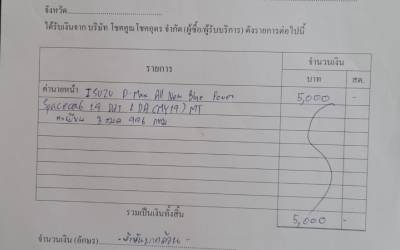 จังหวัด
ได้รับเงินจาก บริษัท โชคคูณโชคอุดร จำกัด (ผู้ซื้อ/ผู้รับบริการ) ดังรายการต่อไปนี้
รายการ จำนวนเงิน
บาท สต.
ค่านายหน้า ISUZU D-Max All New Blue Power 5,000 -
Spacecab 1.9 Ddi L DA (MY19) MT
ทะเบียน 996 กทม
รวมเป็นเงินทั้งสิ้น 5,000 -
จำนวนเงิน (อักษร) -ห้าพันบาทถ้วน-